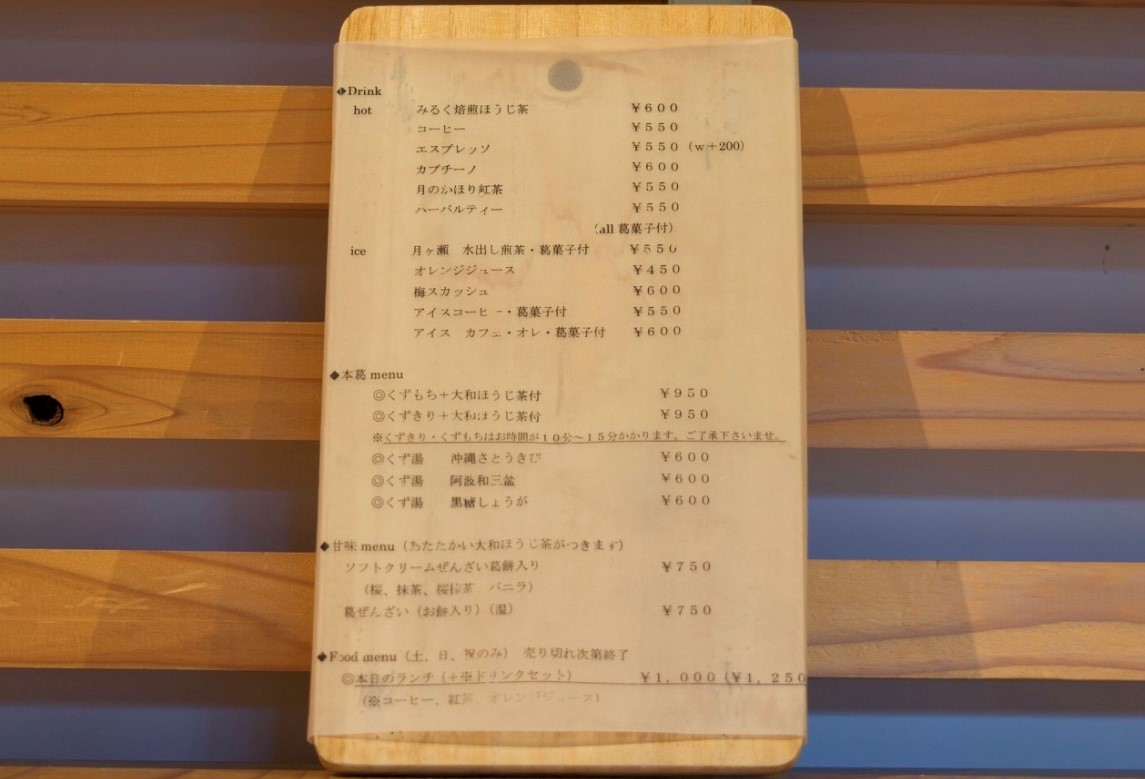 ◆Drink
hot みるく焙煎ほうじ茶 ￥６００
コーヒー ￥５５０
エスプレッソ ￥５５０（w＋200）
カプチーノ ￥６００
月のかほり紅茶 ￥５５０
ハーバルティー ￥５５０
（all 葛菓子付）
ice 月ヶ瀬　水出し煎茶・葛菓子付 ￥５５０
オレンジジュース ￥４５０
梅スカッシュ ￥６００
アイスコーヒー・葛菓子付 ￥５５０
アイス　カフェ・オレ・葛菓子付 ￥６００
◆本葛 menu
◎くずもち＋大和ほうじ茶付 ￥９５０
◎くずきり＋大和ほうじ茶付 ￥９５０
※くずきり・くずもちはお時間が１０分～１５分かかります。ご了承下さいませ。
◎くず湯　沖縄さとうきび ￥６００
◎くず湯　阿波和三盆 ￥６００
◎くず湯　黒糖しょうが ￥６００
◆甘味 menu（あたたかい大和ほうじ茶がつきます）
ソフトクリームぜんざい葛餅入り ￥７５０
（桜、抹茶、桜抹茶　バニラ）
葛ぜんざい（お餅入り）（温） ￥７５０
◆Food menu（土、日、祝のみ）　売り切れ次第終了
◎本日のランチ（＋※ドリンクセット） ￥１，０００（￥１，２５０
（※コーヒー、紅茶、オレンジジュース）